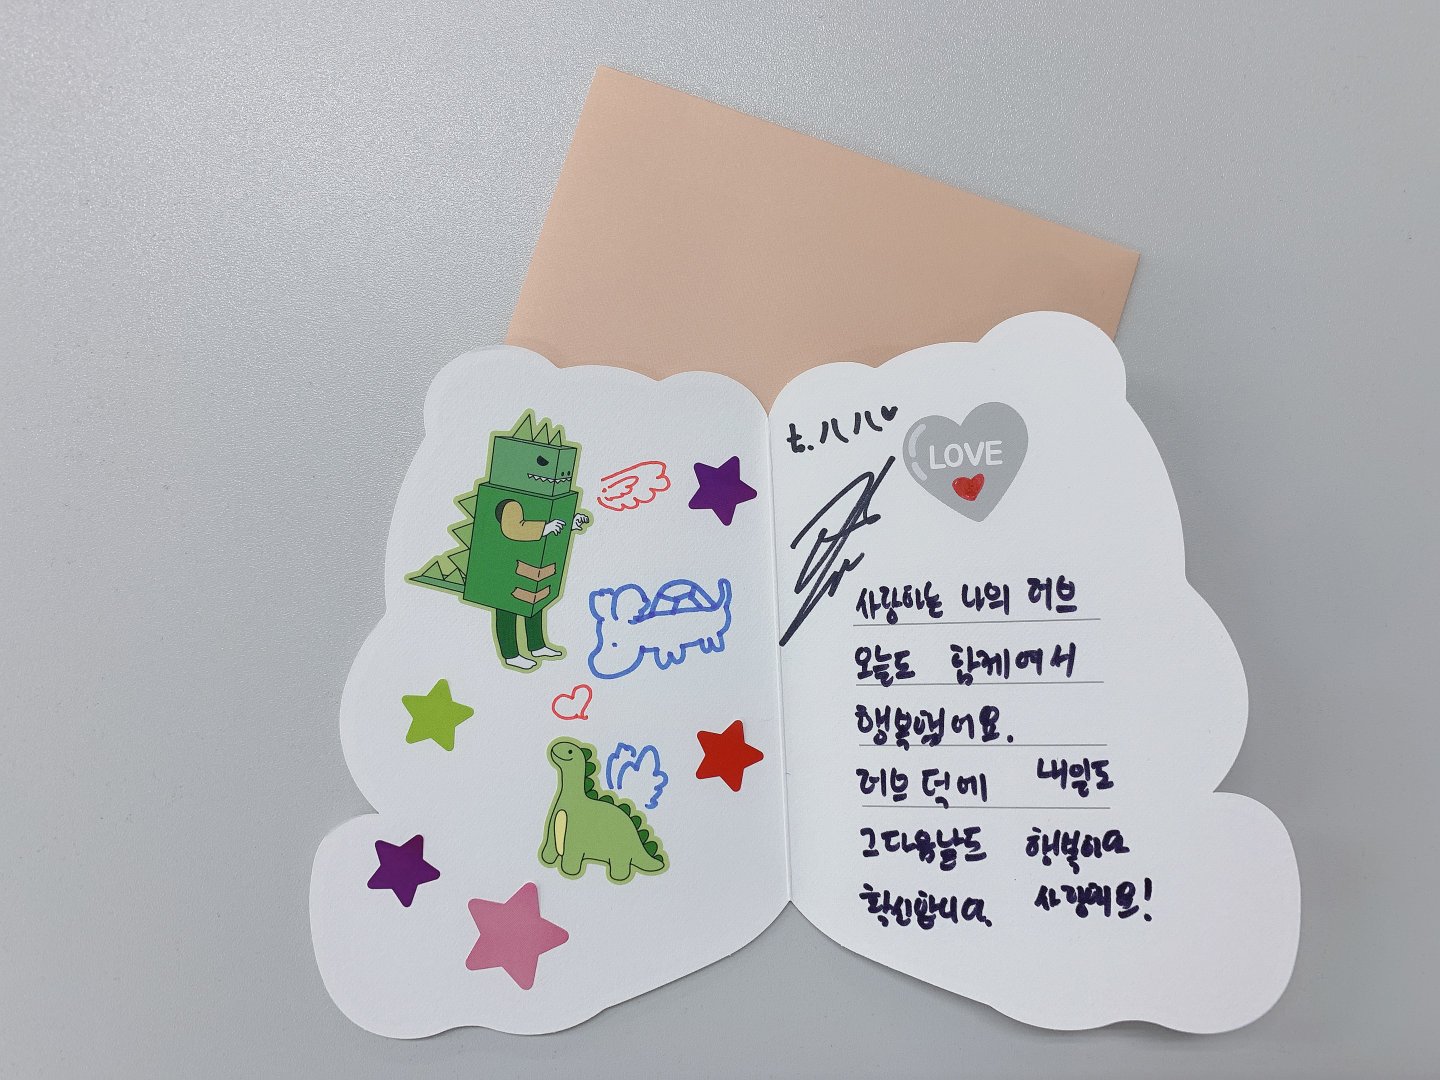 LOVE
사랑하는 나의 러브
오늘도 함께여서
행복했어요.
러브 덕에 내일도
그다음날도 행복이라
확신합니다. 사랑해요!